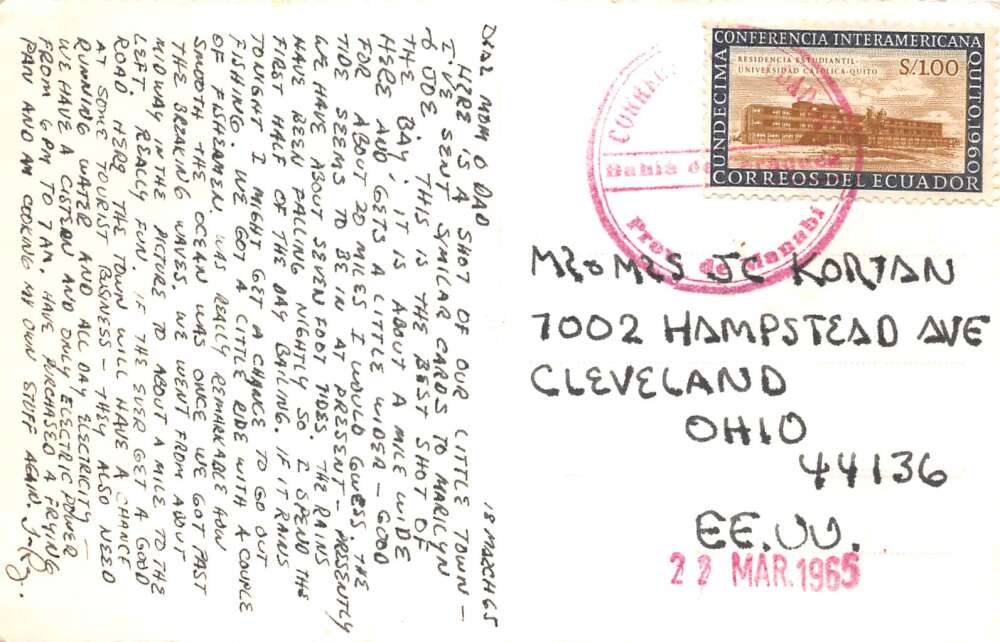 18 MARCH 65
DEAR MOM & DAD
HERE IS A SHOT OF OUR LITTLE TOWN –
I'VE SENT SIMILAR CARDS TO MARILYN
& JUDE. THIS IS THE BEST SHOT OF
THE BAY. IT IS ABOUT A MILE WIDE
HERE AND GETS A LITTLE WIDER – GOOD
FOR ABOUT 20 MILES I WOULD GUESS. THE
TIDE SEEMS TO BE IN AT PRESENT – PRESENTLY
WE HAVE ABOUT SEVEN FOOT TIDES. THE RAINS
HAVE BEEN FALLING NIGHTLY SO I SPEND THE
FIRST HALF OF THE DAY BAILING. IF IT RAINS
TONIGHT I MIGHT GET A CHANCE TO GO OUT
FISHING. WE GOT A LITTLE RIDE WITH A COUPLE
OF FISHERMEN. WAS REALLY REMARKABLE HOW
SMOOTH THE OCEAN WAS ONCE WE GOT PAST
THE BREAKING WAVES. WE WENT FROM ABOUT
MIDWAY IN THE PICTURE TO ABOUT A MILE TO THE
LEFT. REALLY FUN. IF THE EVER GET A GOOD
ROAD HERE THE TOWN WILL HAVE A CHANCE
AT SOME TOURIST BUSINESS – THEY ALSO NEED
RUNNING WATER AND ALL DAY ELECTRICITY –
WE HAVE A CISTERN AND ONLY ELECTRIC POWER
FROM 6 PM TO 7 AM. HAVE PURCHASED A FRYING
PAN AND AM COOKING MY OWN STUFF AGAIN.
UNDECIMA CONFERENCIA INTERAMERICANA QUITO, 1960
RESIDENCIA ESTUDIANTIL –
UNIVERSIDAD CATOLICA-QUITO
S/.1.00
CORREOS DEL ECUADOR
Bahia de
Prov. de Manabí
MR & MRS JC KORTAN
7002 HAMPSTEAD AVE
CLEVELAND
OHIO
44136
EE.UU.
22 MAR. 1965